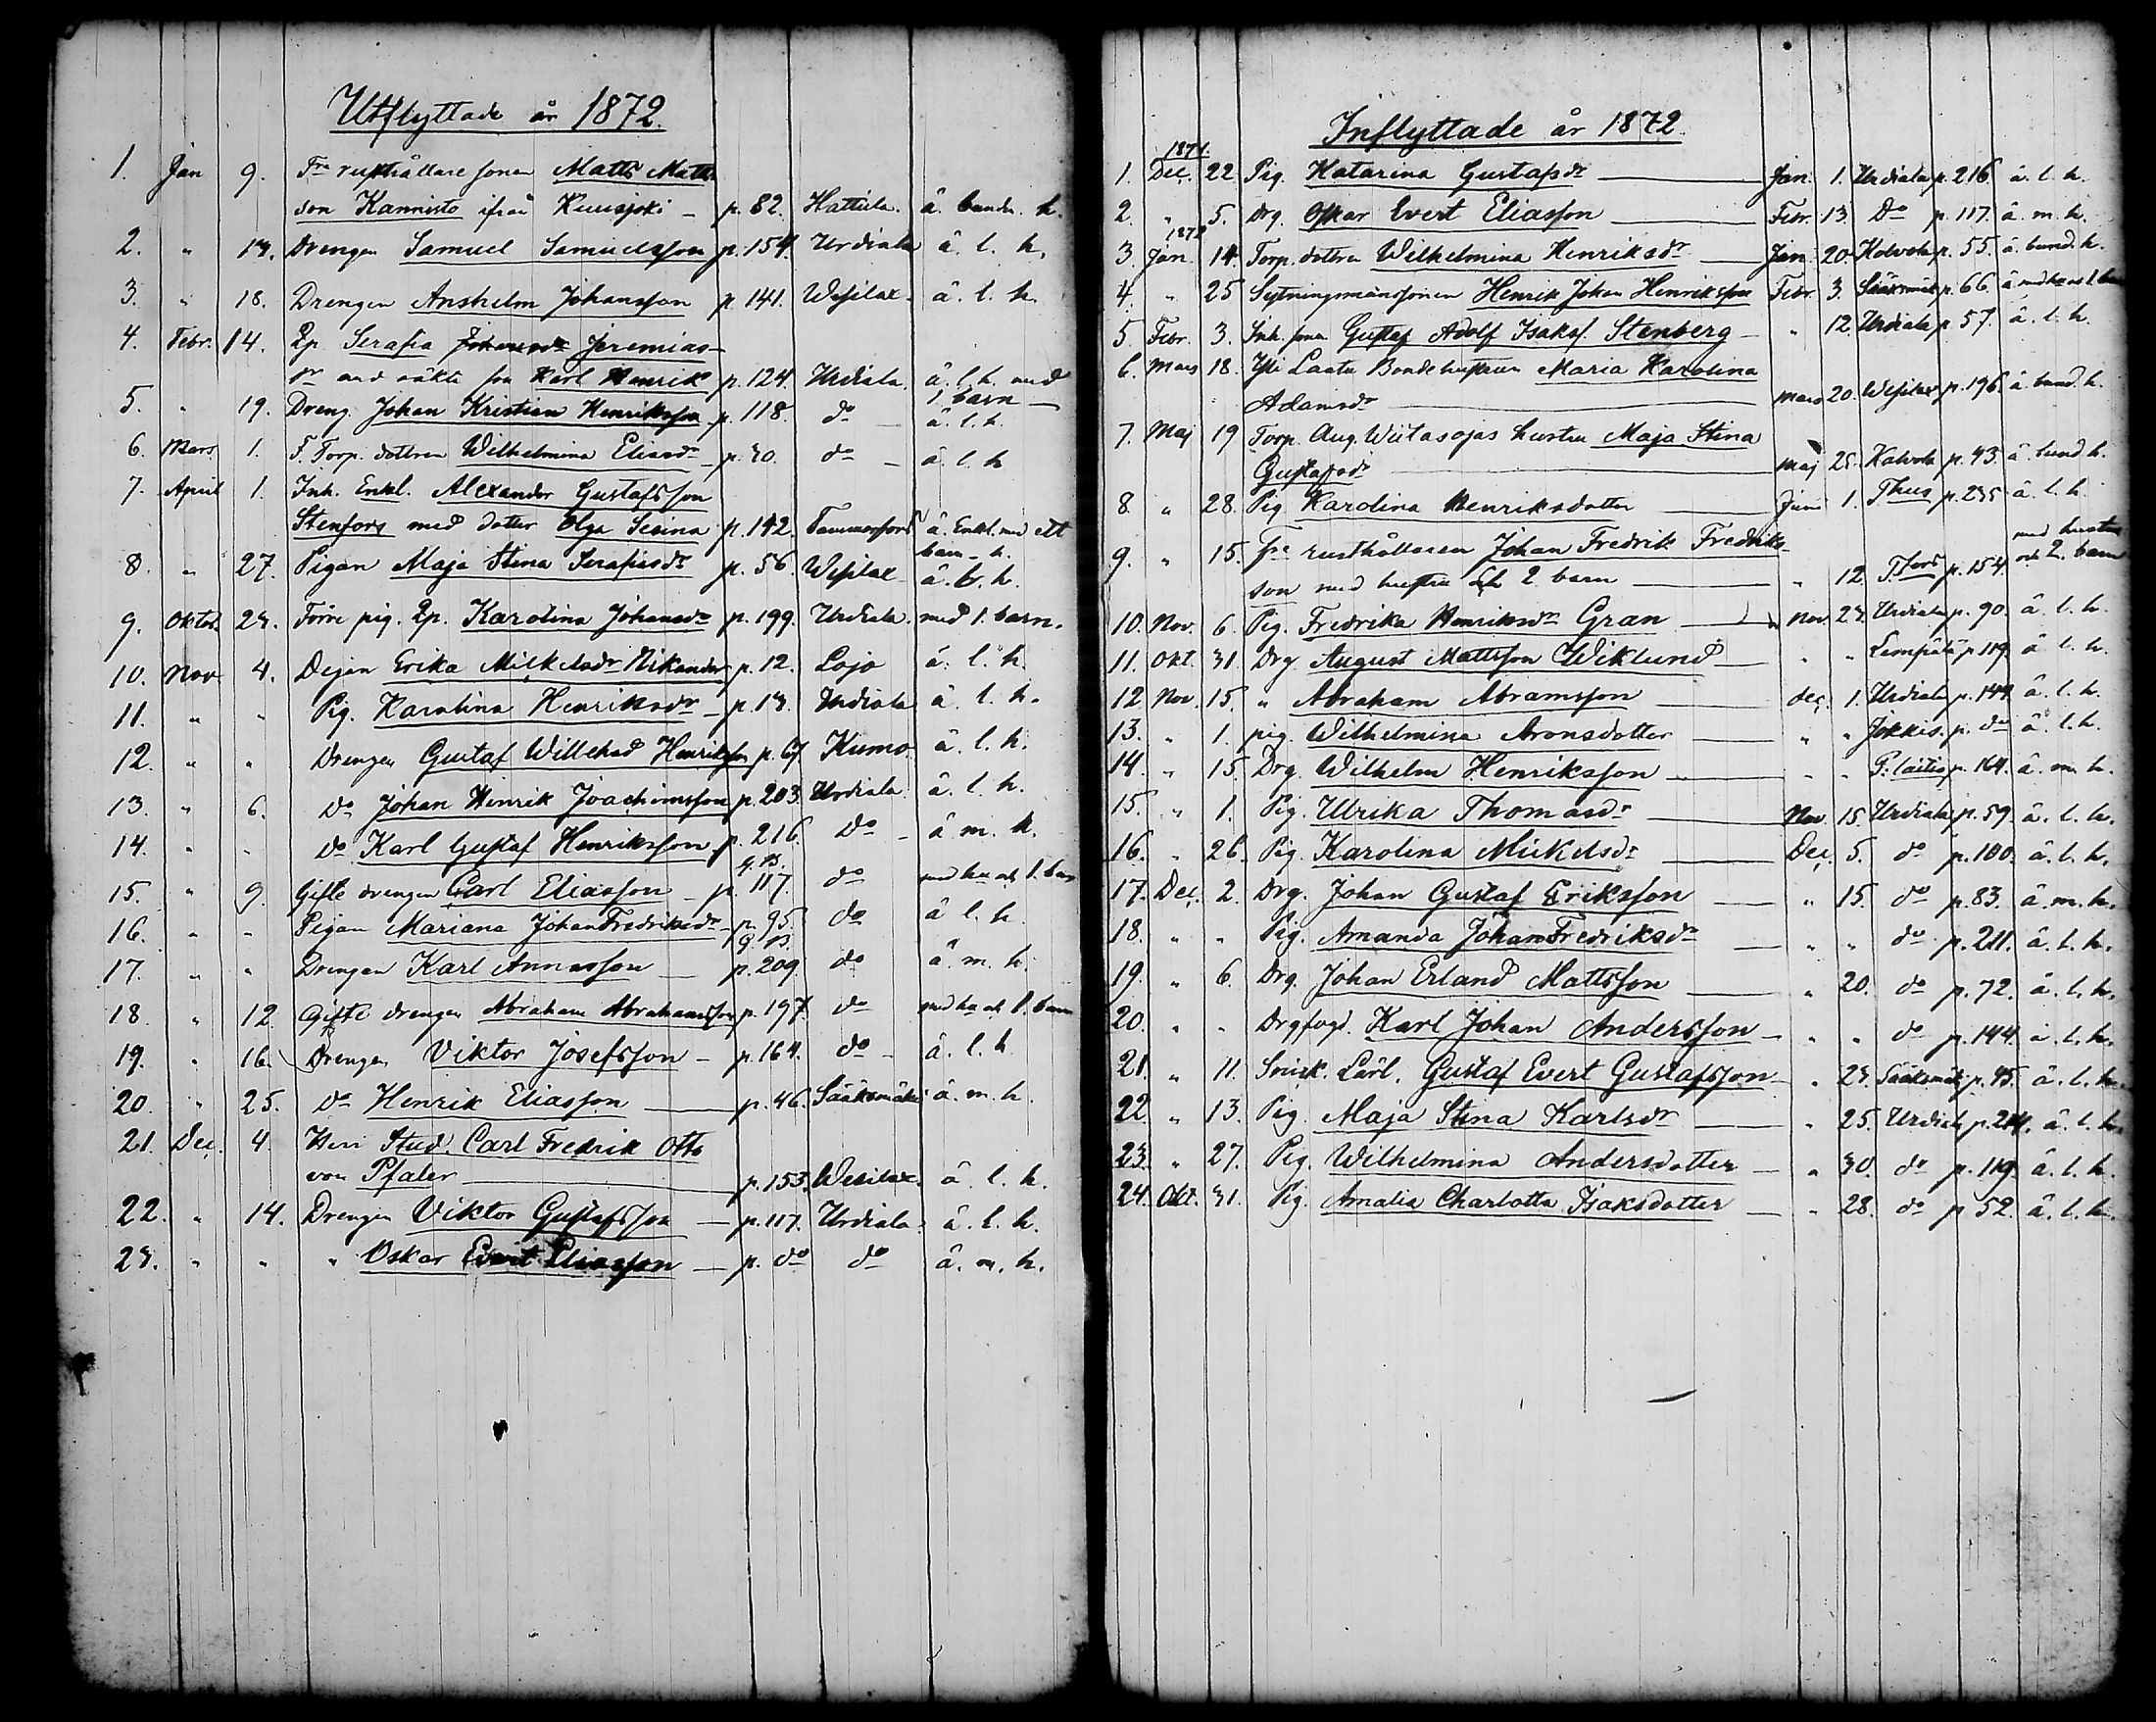 Utflyttade år 1872.
1. Jan 9. Fre rusthållare sonen Matts Matts
son Kannisto ifrån Kuusjoki – p. 82. Hattula. â. bundn. h.
2. " 13. Drengen Samuel Samuelsson p. 154. Urdiala â. l. h.
3. " 18. Drengen Anshelm Johansson p. 141. Wesilax. â. l. h.
4. Febr. 14. Qp Serafia Johansdr Jeremias–
dr med oäkta son Karl Henrik p. 124. Urdiala. â. l. h. med
1. barn –
5. " 19. Dreng. Johan Kristian Henriksson p. 118. do – â. l. h.
6. Mars 1. F. Torp. dottren Wilhelmina Eliasdr p. 30. do – â. l. h
7. April 1. Inh. Enkl. Alexander Gustafsson
Stenfors med dotter Olga Serina p. 142. Tammerfors â. Enkl. med ett
barn – h.
8. " 27. Pigan Maja Stina Serafiasdr p. 56. Wesilax â. b. h.
9. Oktob. 23. Förre pig. Qp. Karolina Johansdr p. 199. Urdiala. med 1. barn.
10. Nov. 4. Dejan Erika Mickelsdr Nikander p. 12. Lojo â. l. h.
11. " " Pig. Karolina Henriksdr – p. 13. Urdiala â. l. h.
12. " " Drengen Gustaf Willehad Henriksson p. 67. Kumo â. l. h.
13. " 6. Do Johan Henrik Joachimsson p. 203. Urdiala. â. l. h.
14. " " Do Karl Gustaf Henriksson p. 216. Do – â. m. h.
15. " 9. Gifte drengen Carl Eliasson – p. 117. do med hu och 1. barn
16. " " Pigan Mariana JohanFredriksdr – p. 95. do â l. h.
17. " " Drengen Karl Annasson – p. 209. do â. m. h.
18. " 12. Gifte drengen Abraham Abrahamsson p. 197. do med hu och 1. barn
19. " 16. Drengen Viktor Josefsson – p. 164. do – â. l. h
20. " 25. Do Henrik Eliasson – p. 46. Sääksmäki â. m. h.
21. Dec. 4. Herr Stud. Carl Fredrik Otto
von Pfaler – p. 153. Wesilax. â. l. h.
22. " 14. Drengen Viktor Gustafsson – p. 117. Urdiala. â. l. h.
23. " " " Oskar Evert Eliasson – p. do do â. m. h.
Inflyttade år 1872.
1871.
1. Dec. 22 Pig. Katarina Gustafsdr – Jan. 1. Urdiala p. 216 â. l. h.
2. " 5. Drg. Oskar Evert Eliasson – Febr. 13. Do p. 117. â. m. h.
1872
3. Jan. 14. Torp. dottren Wilhelmina Henriksdr – Jan. 20. Kalvola p. 55. â. bund. h.
4. " 25 Sytningsmanssonen Henrik Johan Henriksson Febr. 3. Sääksmäki p. 66 â. med hu och 1. barn
5 Febr. 3. Inh. sonen Gustaf Adolf Isaksf. Stenberg – " 12. Urdiala p. 57. â. l. h.
6. Mars 18. Yli Laatu Bondehustrun Maria Karolina
Adamsdr – mars 20. Wesilax p. 196 â. bund. h.
7. Maj 19 Torp. Aug. Wiitasojas hustru Maja Stina
Gustafsdr – maj 25. Kalvola p. 43. â. bund h.
8 " 28. Pig. Karolina Henriksdotter – Juni 1. Thus p. 235 â. l. h.
9. " 15. fre rusthållaren Johan Fredrik Fredriks–
son med hustru och 2. barn – " 12. T.fors p. 154. med hustru
och 2. barn
10. Nov. 6. Pig. Fredrika Henriksdr Gran – Nov. 23. Urdiala p. 90. â. l. h.
11. Okt. 31. Drg. August Mattsson Wiklund – " " Lempälä p. 119. â l. h.
12 Nov. 15. " Abraham Abramsson – dec. 1. Urdiala p. 149. â. l. h.
13. " 1. pig. Wilhelmina Aronsdotter – " " Jokkis. p. do â. l. h.
14. " 15. Drg. Wilhelm Henriksson – " " p. 164. â. m. h.
15. " 1. Pig. Ulrika Thomasdr – Nov. 15. Urdiala p. 59. â. l. h.
16. " 26. Pig. Karolina Mickelsdr – Dec. 5. do p. 180. â. l. h.
17. Dec. 2. Drg. Johan Gustaf Eriksson – " 15. do p. 83. â. m. h.
18. " " Pig. Amanda JohanFredriksdr – " " do p. 211. â. l. h.
19. " 6. Drg. Johan Erland Mattsson – " 20. do p. 72. â. l. h.
20. " " Drgfogd. Karl Johan Andersson – " " do p. 144. â. l. h.
21. " 11. Snick. Lärl. Gustaf Evert Gustafsson – " 23. Sääksmäki p. 45. â. l. h.
22. " 13. Pig. Maja Stina Karlsdr – " 25. Urdiala p. 214. â. l. h.
23. " 27. Pig. Wilhelmina Andersdotter – " 30. do p. 119. â. l. h.
24. Okt. 31. Pig. Amalia Charlotta Isaksdotter – " 28. do p 52. â. l. h.